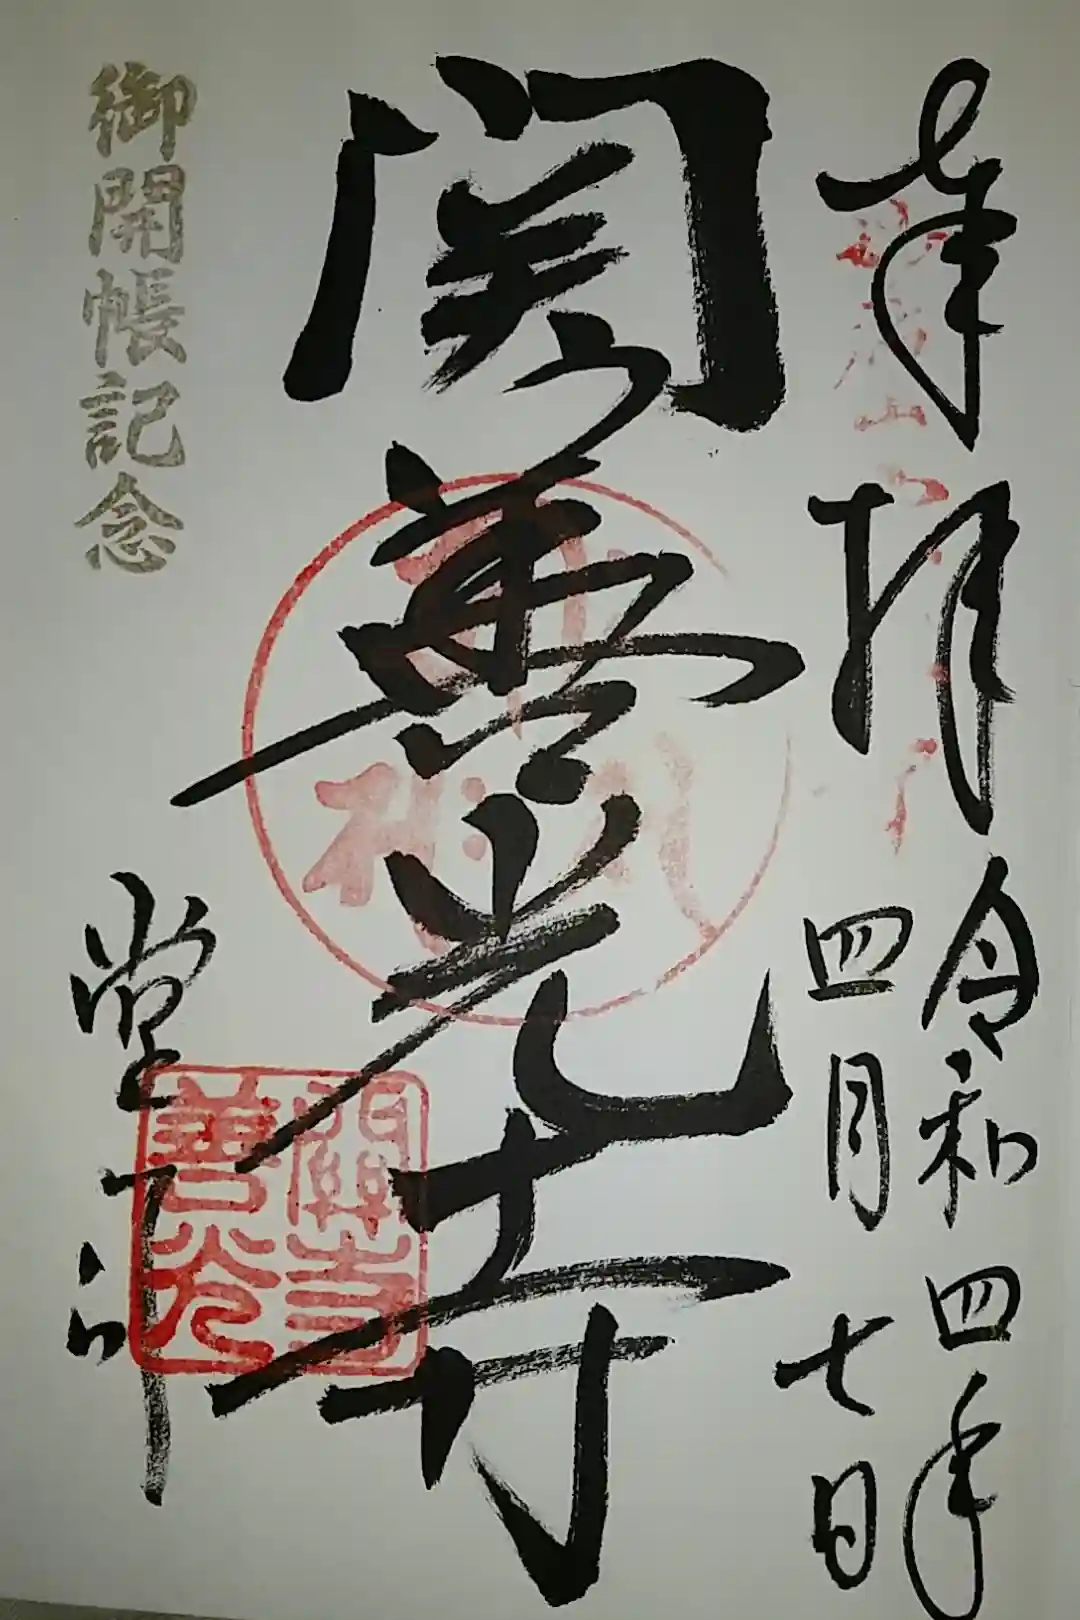 奉拝
令和四年
四月七日
関善光寺
御開帳記念
堂司
關善光寺